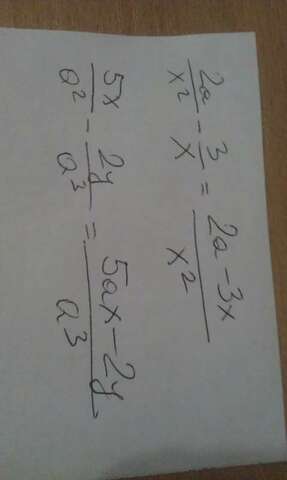 2a/x² - 3/x = (2a-3x)/x²
5x/a² - 2y/a³ = (5ax-2y)/a³